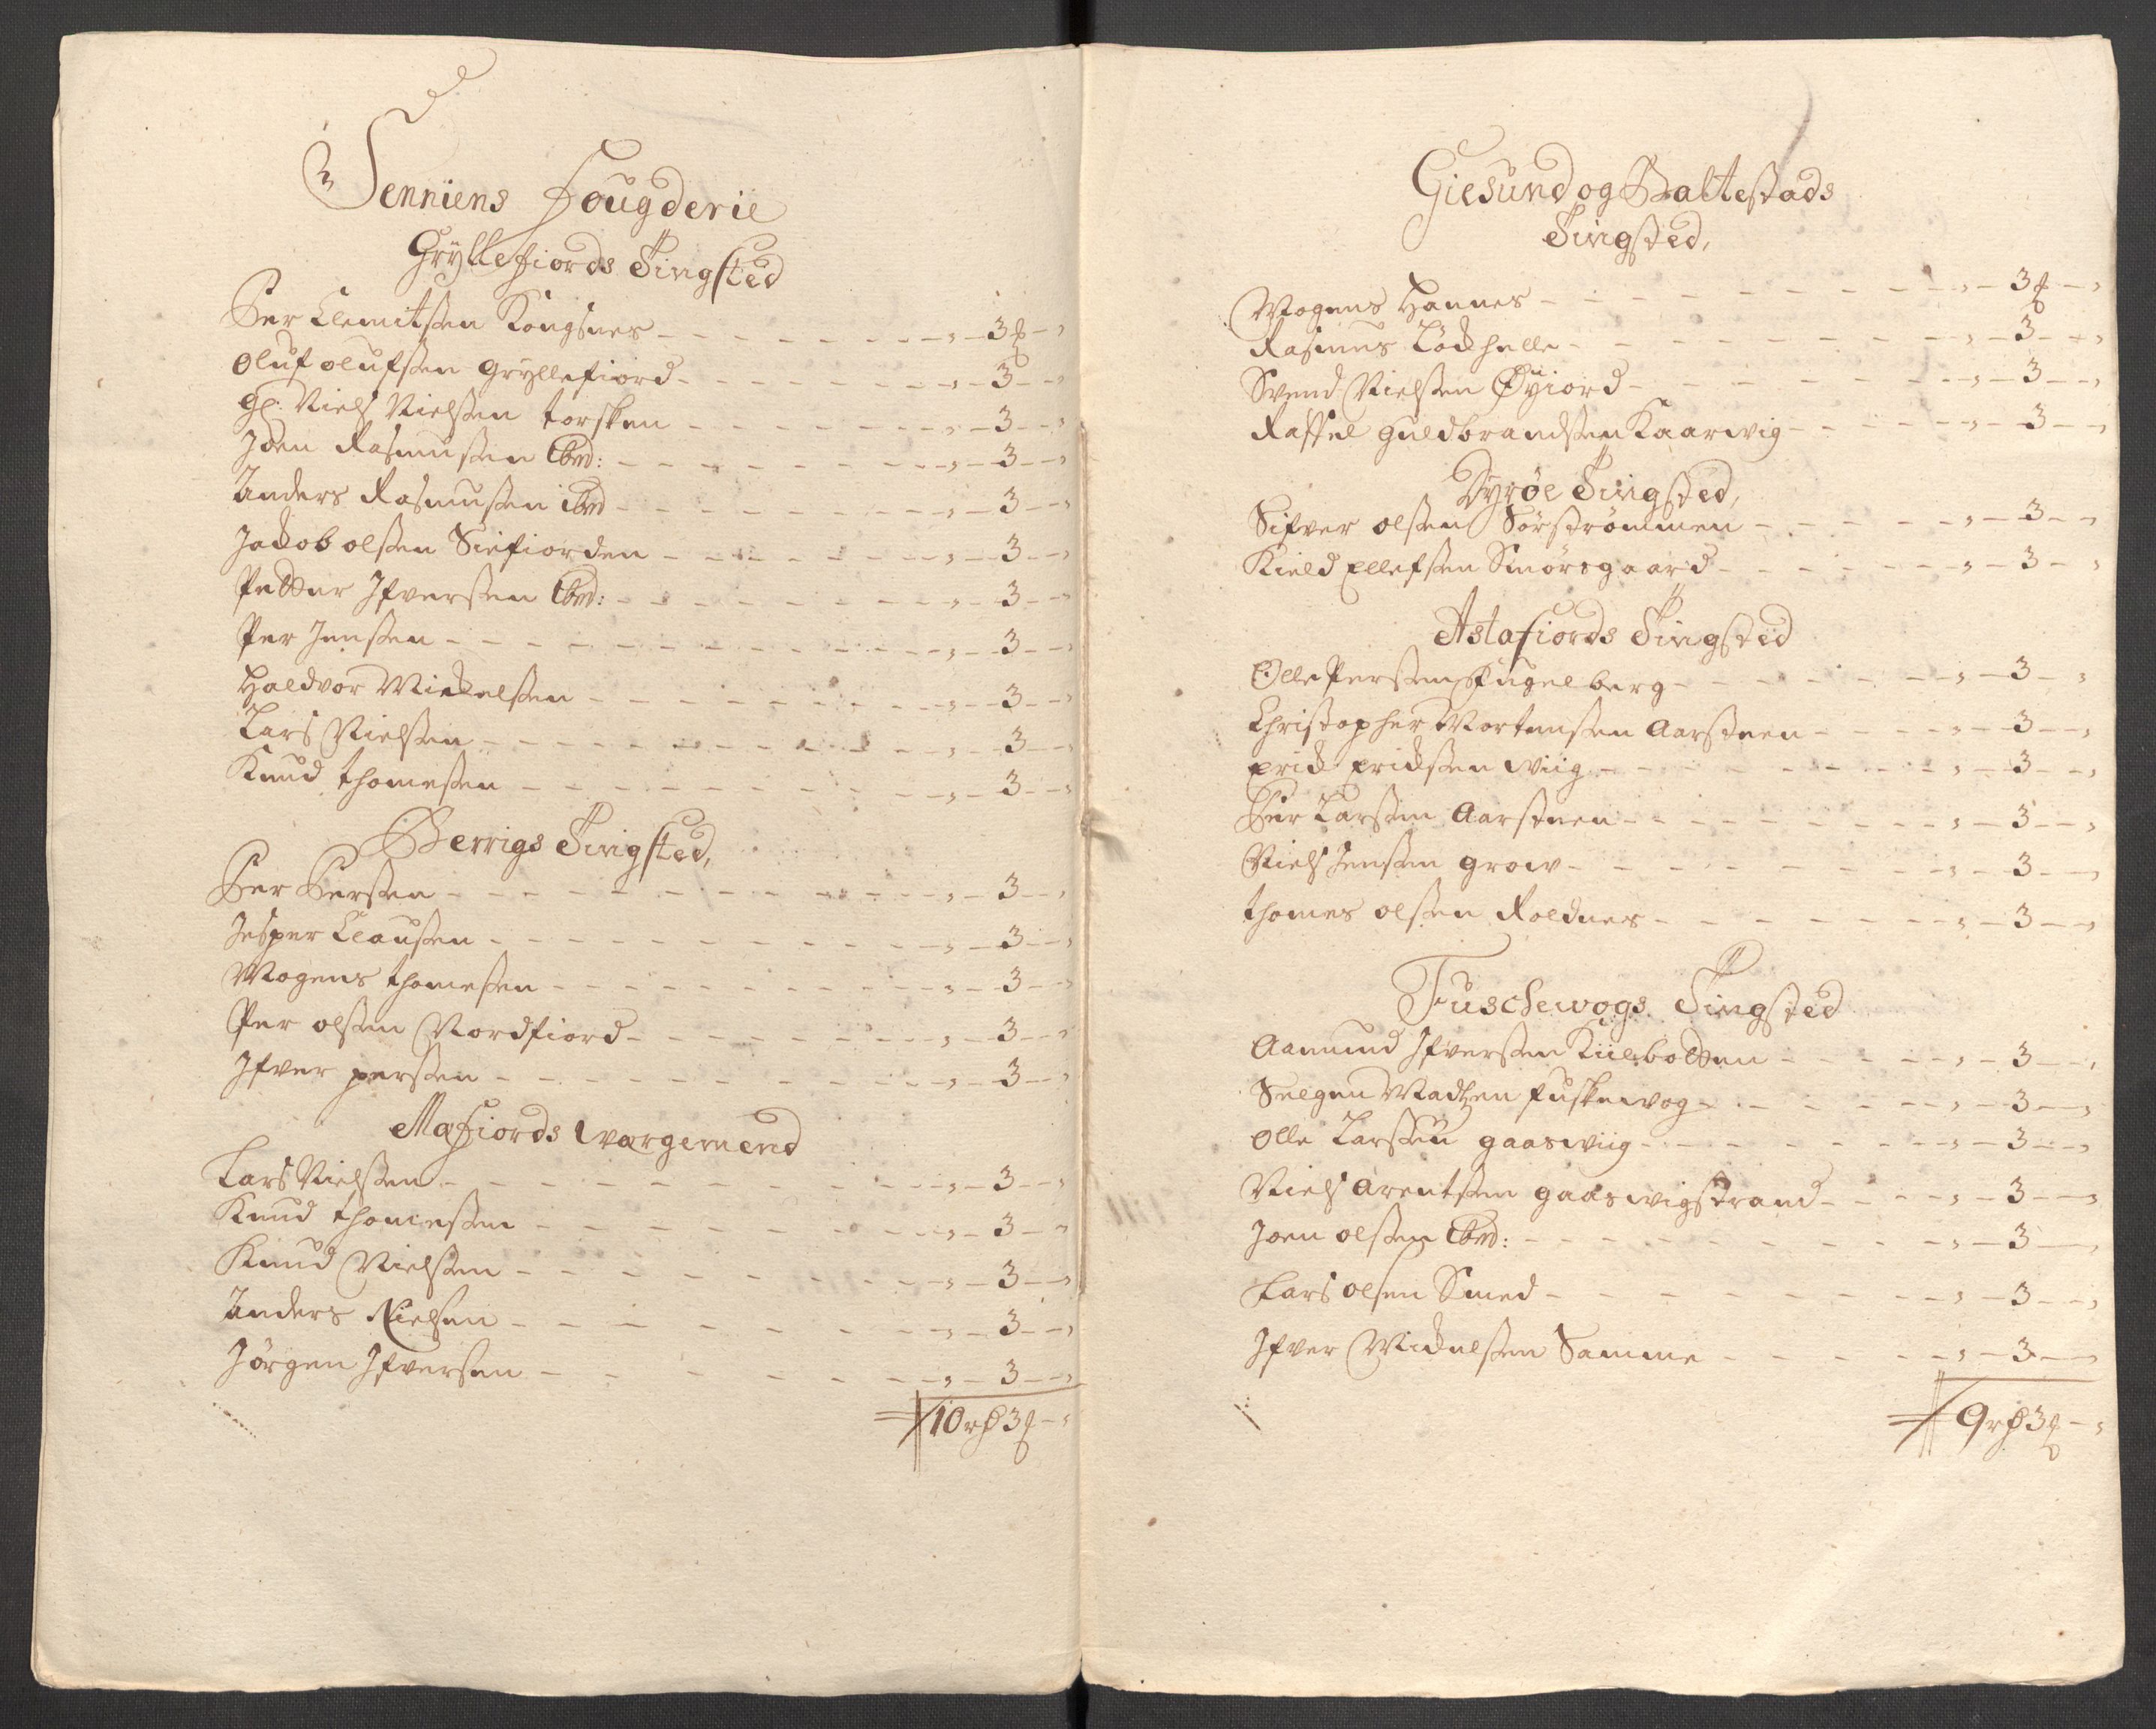 Senniens Fougderie
Gryllefiords Tingsted
Per Clemitsen Kongsnes - - - 3 ℔ -
Oluf olufsen Gryllefiord - - - 3 -
Gl: Niels Nielsen torsken - - - 3 -
Joen Rasmussen Ibmd: - - - 3 -
Anders Rasmussen ibmd - - - 3 -
Jackob olsen Siefiorden - - - 3 -
Petter Ifversen Ibmd: - - - 3 -
Per Jensen - - - 3 -
Haldvor Mickelsen - - - 3 -
Lars Nielsen - - - 3 -
Knud thomesen - - - 3 -
Berrigs Tingsted,
Per Persen - - - 3 -
Jesper Clausen - - - 3 -
Mogens thomesen - - - 3 -
Per olsen Nordfiord - - - 3 -
Ifver persen - - - 3 -
Mafiords wærgemend
Lars Nielsen - - - 3 -
Knud thomesen - - - 3 -
Knud Nielsen - - - 3 -
Anders Nielsen - - - 3 -
Jörgen Ifversen - - - 3 -
10 rh 3 ℔ -
Giesund og Baltestads
Tingsted,
Mogens Hannes - - - 3 ℔ -
Rasmus Löckhelle - - - 3 -
Svend Nielsen Øyiord - - - 3 -
Raffel Guldbrandsen Kaarwig - - - 3 -
Dyrøe Tingsted,
Sifver olsen Sörströmmen - - - 3 -
Kield Ellefsen Smörsgaard - - - 3 -
Astafiords Tingsted
Olle Persen Fugelberg - - - 3 -
Christopher Mortensen Aarstnen - - - 3 -
Erick Ericksen wiig - - - 3 -
Per Larsen Aarstnen - - - 3 -
Niels Jensen grow - - - 3 -
thomes olsen Roldnes - - - 3 -
Fuschewogs Tingsted
Aamund Ifversen Kiilbotten - - - 3 -
Selgen Madtzen fuskewog - - - 3 -
Olle Larssen gaaswiig - - - 3 -
Niels Arentsen gaaswigstrand - - - 3 -
Joen olsen Ibmd: - - - 3 -
Lars olsen Smed - - - 3 -
Ifver Mickelsen Samme - - - 3 -
9 rh 3 ℔ -